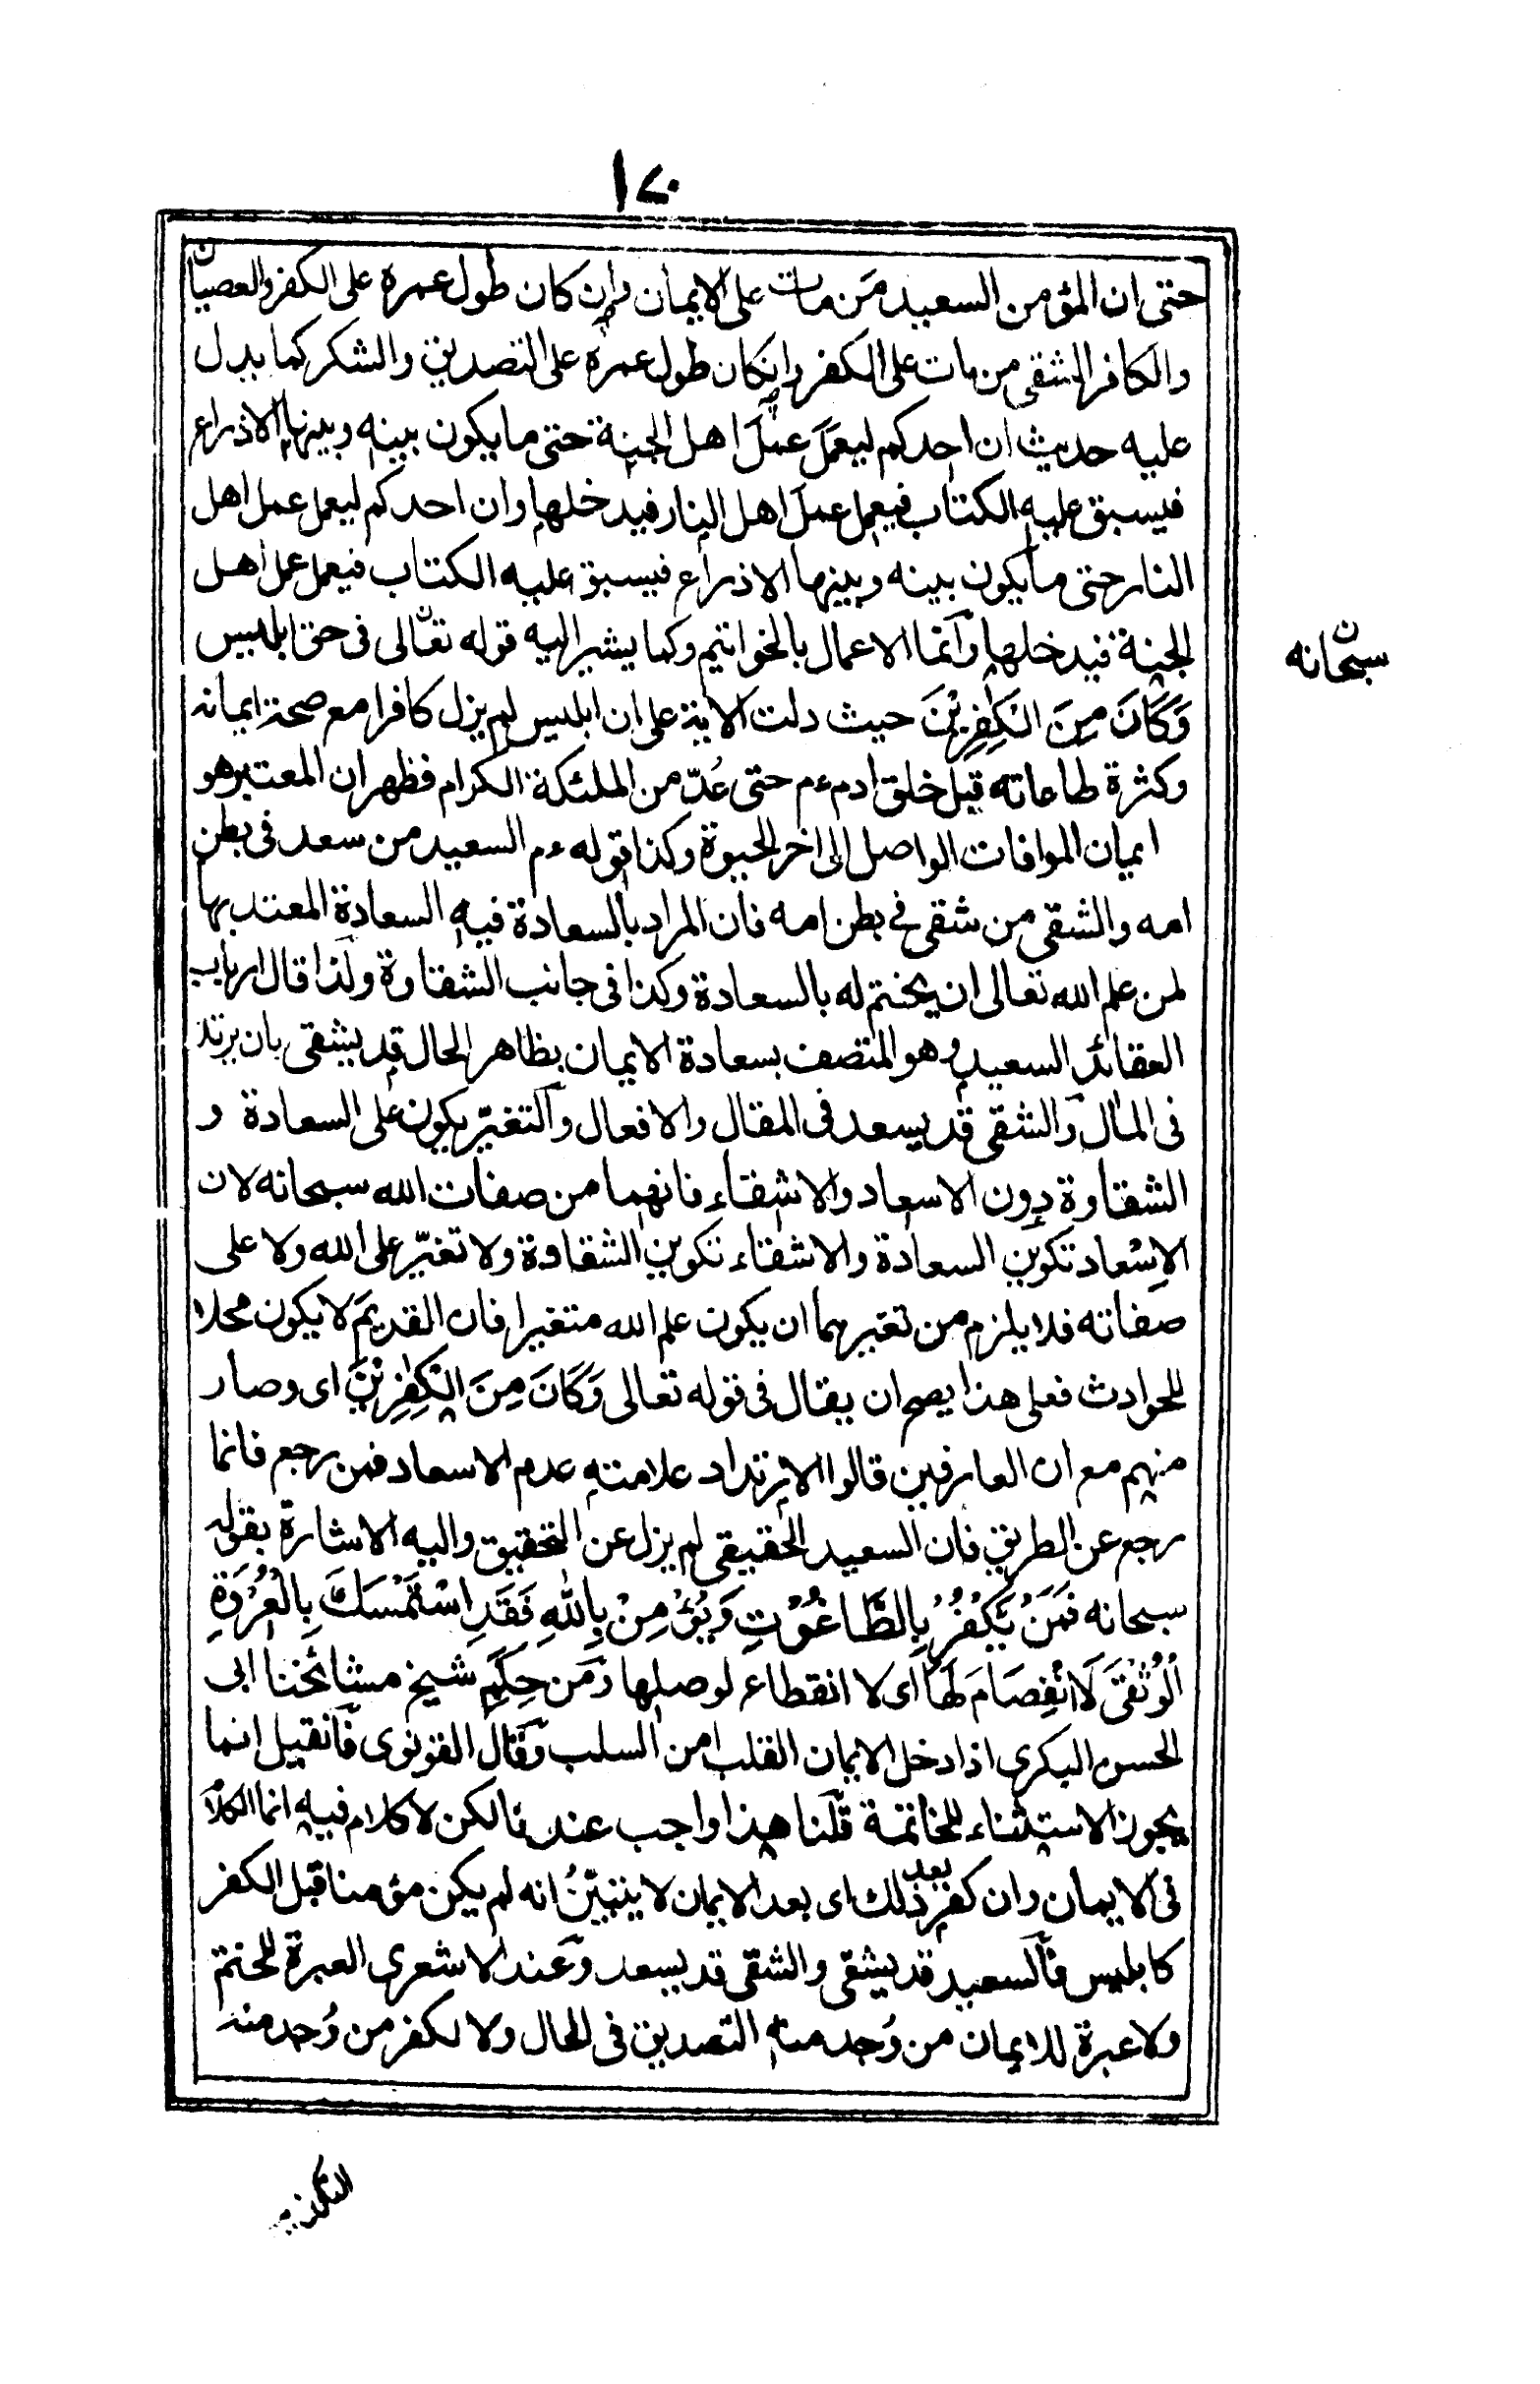 ١٧٠
حتى ان المؤمن السعيد مَن مات على الايمان وان كان طول عمره على الكفر والعصيان
والكافر الشقى من مات على الكفر وانكان طول عمره على التصديق والشكر كما يدل
عليه حديث ان احدكم ليعمَلَ عمَلَ اهل الجنة حتى ما يكون بينه وبينها الا ذراع
فيسبق عليه الكتاب فيعمل عملَ اهل النار فيدخلها وان احدكم ليعمل عمل اهل
النار حتى ما يكون بينه وبينها الا ذراع فيسبق عليه الكتاب فيعمل عمل اهل
الجنة فيدخلها وانما الاعمال بالخواتيم وكما يشير اليه قوله تعالى فى حق ابليس
سبحانه
وَكَانَ مِنَ الْكٰفِرِيْنَ حيث دلت الاية على ان ابليس لم يزل كافرا مع صحة ايمانه
وكثرة طاعاته قبل خلق ادم ءم حتى عُدّ من الملئكة الكرام فظهر ان المعتبر هو
ايمان الموافات الواصل الى اخر الحيوة وكذا قوله ءم السعيد من سعد فى بطن
امه والشقى من شقى فى بطن امه فان المراد بالسعادة فيه السعادة المعتد بها
لمن علم الله تعالى ان يختم له بالسعادة وكذا فى جانب الشقاوة ولذا قال ارباب
العقائد السعيد وهو المتصف بسعادة الايمان بظاهر الحال قد يشقى بان يرتد
فى المآل والشقى قد يسعد فى المقال والافعال والتغيّر يكون على السعادة و
الشقاوة دون الاسعاد والاشقاء فانهما من صفات الله سبحانه لان
الاِسْعاد تكوين السعادة والاشقاء تكوين الشقاوة ولا تغيّر على الله ولا على
صفاته فلا يلزم من تغيرهما ان يكون علم الله متغيرا فان القديمَ لا يكون محلا
للحوادث فعلى هذا يصح ان يقال فى قوله تعالى وَكَانَ مِنَ الْكٰفِرِيْنَ اى وصار
منهم مع ان العارفين قالوا الارتداد علامته عدم الاسعاد فمن رجع فانما
رجع عن الطريق فان السعيد الحقيقى لم يزل عن التحقيق واليه الاشارة بقوله
سبحانه فَمَنْ يَّكْفُرْ بِالطَّاغُوْتِ وَيُؤْمِنْ بِاللّٰهِ فَقَدِ اسْتَمْسَكَ بِالْعُرْوَةِ
الْوُثْقٰى لَا انْفِصَامَ لَهَا اى لا انقطاع لوصلها ومن حِكَمِ شيخ مشائخنا ابى
الحسن البكرى اذا دخل الايمان القلب امن السلب وقال القونوى فان قيل انما
يجوز الاستثناء للخاتمة قلنا هذا واجب عندنا لكن لا كلام فيه انما الكلام
فى الايمان وان كفر بعد ذلك اى بعد الايمان لا يتبيّنُ انه لم يكن مؤمنا قبل الكفر
كابليس فالسعيد قد يشقى والشقى قد يسعد وعند الاشعرى العبرة للختم
ولا عبرة للايمان من وُجد منه التصديق فى الحال ولا لكفر من وُجد منه
التكذيب